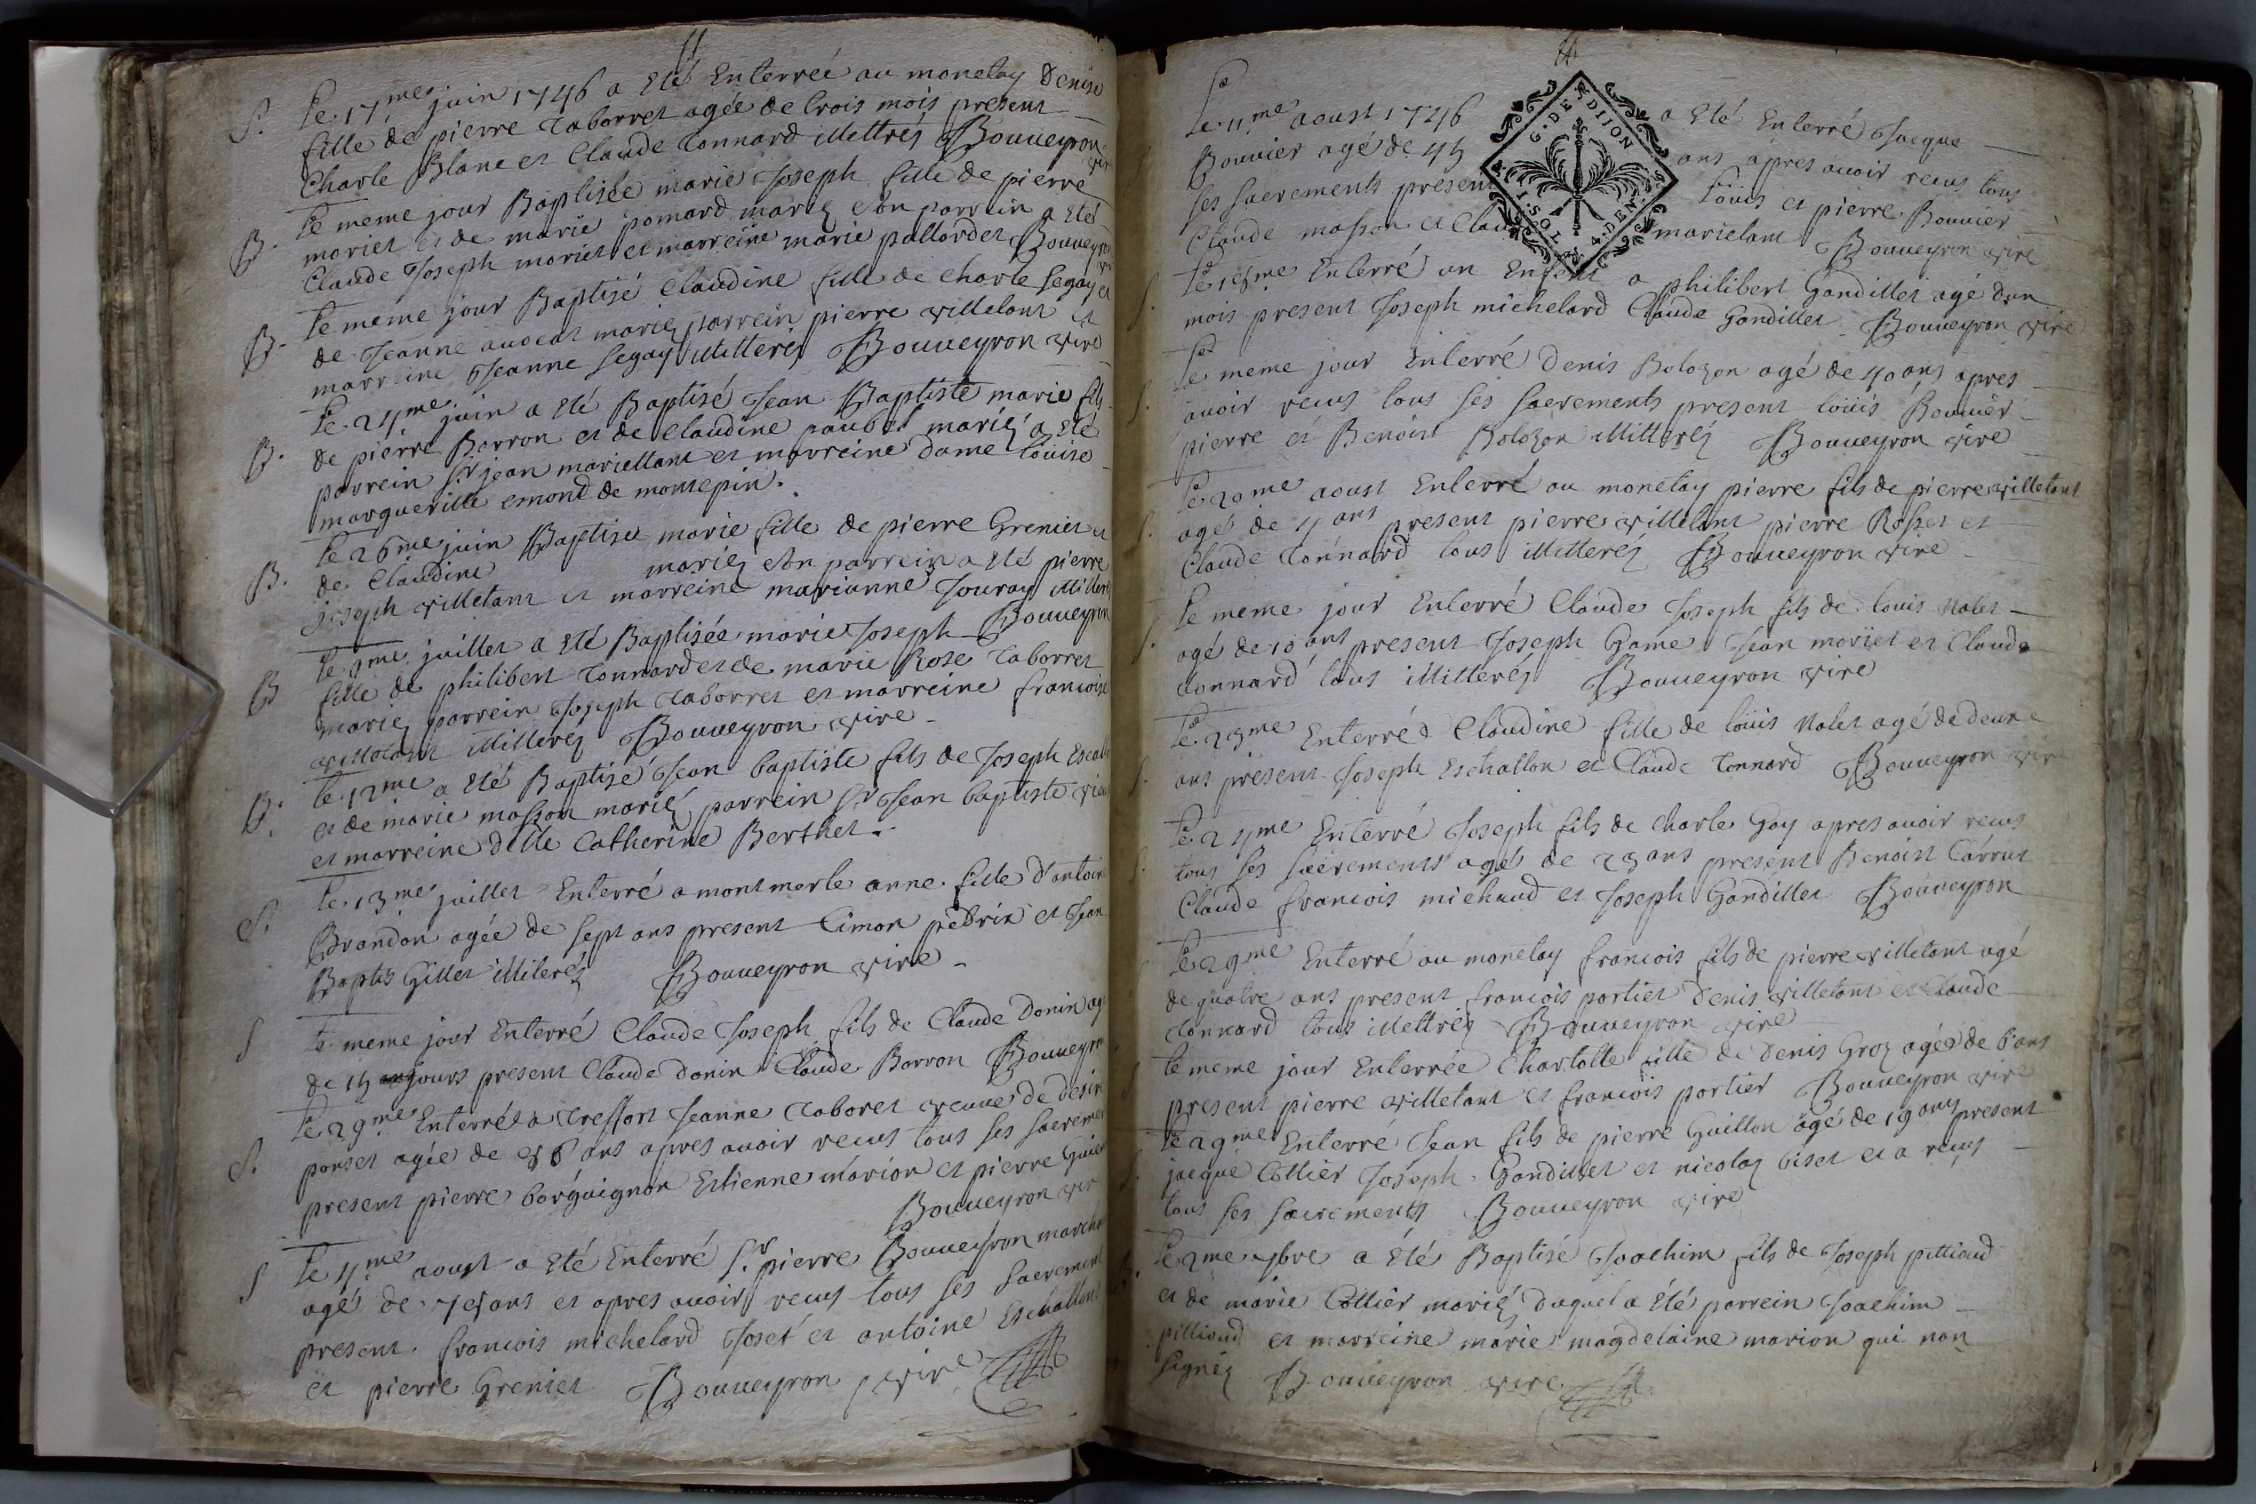 S. Le 17me juin 1746 a Eté Enterreé au monetay Denise
fille de pierre Taborret agée de trois mois present
Charle Blanc et Claude Tonnard illettrés Bouueyron vire
B. Le meme jour Baptisée marie Joseph fille de pierre
moriet et de marie pomard mariez son parrein a eté
Claude Joseph moriet et marreine marie pallordet Bouueyron
B. Le meme jour Baptisé Claudine fille de charle Segay et
de Jeanne auocat mariez parrein pierre villetant et
marreine Jeanne Segay illiterez Bouueyron vire
B. Le 24me juin a eté Baptisé Jean Baptiste marie fils
de pierre Borron et de Claudine mariez a eté
parrein Sr jean mariettant et marreine dame Louise
margueritte emond de montepin.
B. Le 26me juin Baptisee marie fille de pierre Grenier et
de Claudine mariez son parrein a eté pierre
joseph villetant et marreine marianne Touray
Le 9me juillet a eté Baptisée marie Joseph Bouueyron
B fille de philibert Tonnard et de marie Rose Taborret
mariez parrein Joseph Taborret et marreine francoise
villetant illiterez Bouueyron vire
B. le 12me a eté Baptisé Jean baptiste fils de Joseph
et de marie masson mariez parrein Sr Jean baptiste
et marreine dlle Catherine Berthet.
S. le 13me juillet Enterré a montmerle anne fille d'antoine
Brandon agée de sept ans present Cimon pebrix et Jean
Baptis Gillet illiterez Bouueyron vire
S le meme jour Enterré Claude Joseph fils de Claude Donin agé
de 15 jours present Claude donin Claude Borron Bouueyron
S. Le 29me Enterrée a Treffort Jeanne Taboret veuue de desir
ponset agée de ans apres auoir reçus tous ses sacremen
present pierre borguignon Estienne marion et pierre
Bouueyron vire
S Le 4me aoust a eté Enterré Sr. pierre Bouueyron marcha
agé de ans et apres auoir reçus tous ses sacrement
present francois michelard Joset et antoine Eschallon
et pierre Grenier Bouueyron vire
Le 11me aoust 1746 a Eté Enterré Jacque
Bouuier agé de 45 ans apres auoir recus tous
ses sacrements present Loüis et pierre Bouuier
Claude masson et Clau marietant Bouueyron vire
G. DE DIJON
1. SOL 4. DEN.
S. Le 15me Enterré un Enfant a philibert Gondillet agé dun
mois present Joseph michelard Claude Gondillet Bouueyron vire
S. Le meme jour Enterré Denis Bolozon agé de 40 ans apres
auoir recus tous ses sacrements present loüis Bouuier
pierre et Benoist Bolozon illitterés Bouueyron vire
S. Le 20me aoust Enterré au monetay pierre fils de pierre villetant
agés de 4 ans present pierre villetant pierre Rosset et
Claude Tonnard tous illiterés Bouueyron vire
S. Le meme jour Enterré Claude Joseph fils de louis Nalet
agé de 10 ans present Joseph Game Jean moriet et Claude
Tonnard tous illiterés Bouueyron vire
Le 23me Enterré Claudine fille de loüis Nalet agé de deux
S. ans present Joseph Eschallon et Claude Tonnard Bouueyron vire
Le 24me Enterré Joseph fils de charle Gay apres auoir recus
S. tous ses sacrements agés de 23 ans present Benoist Carrut
Claude francois michaud et Joseph Gondillet Bouueyron
Le 29me Enterré au monetay francois fils de pierre villetant agé
de quatre ans present francois portier Denis villetant et Claude
Tonnard tous illettrez Bouueyron vire
le meme jour Enterrée Charlotte fille de Denis Groz agée de 6 ans
present pierre villetant et francois portier Bouueyron vire
Le 29me Enterré Jean fils de pierre Guillon agé de 19 ans present
jacque Cottier Joseph Gondillet et nicolas biset et a reçus
tous ses sacrements Bouueyron vire
Le 2me 7bre a eté Baptisé Joachim fils de Joseph pittioud
et de marie Cottier mariez duquel a eté parrein Joachim
pittioud et marreine marie magdelaine marion qui non
signéz Bouueyron vire